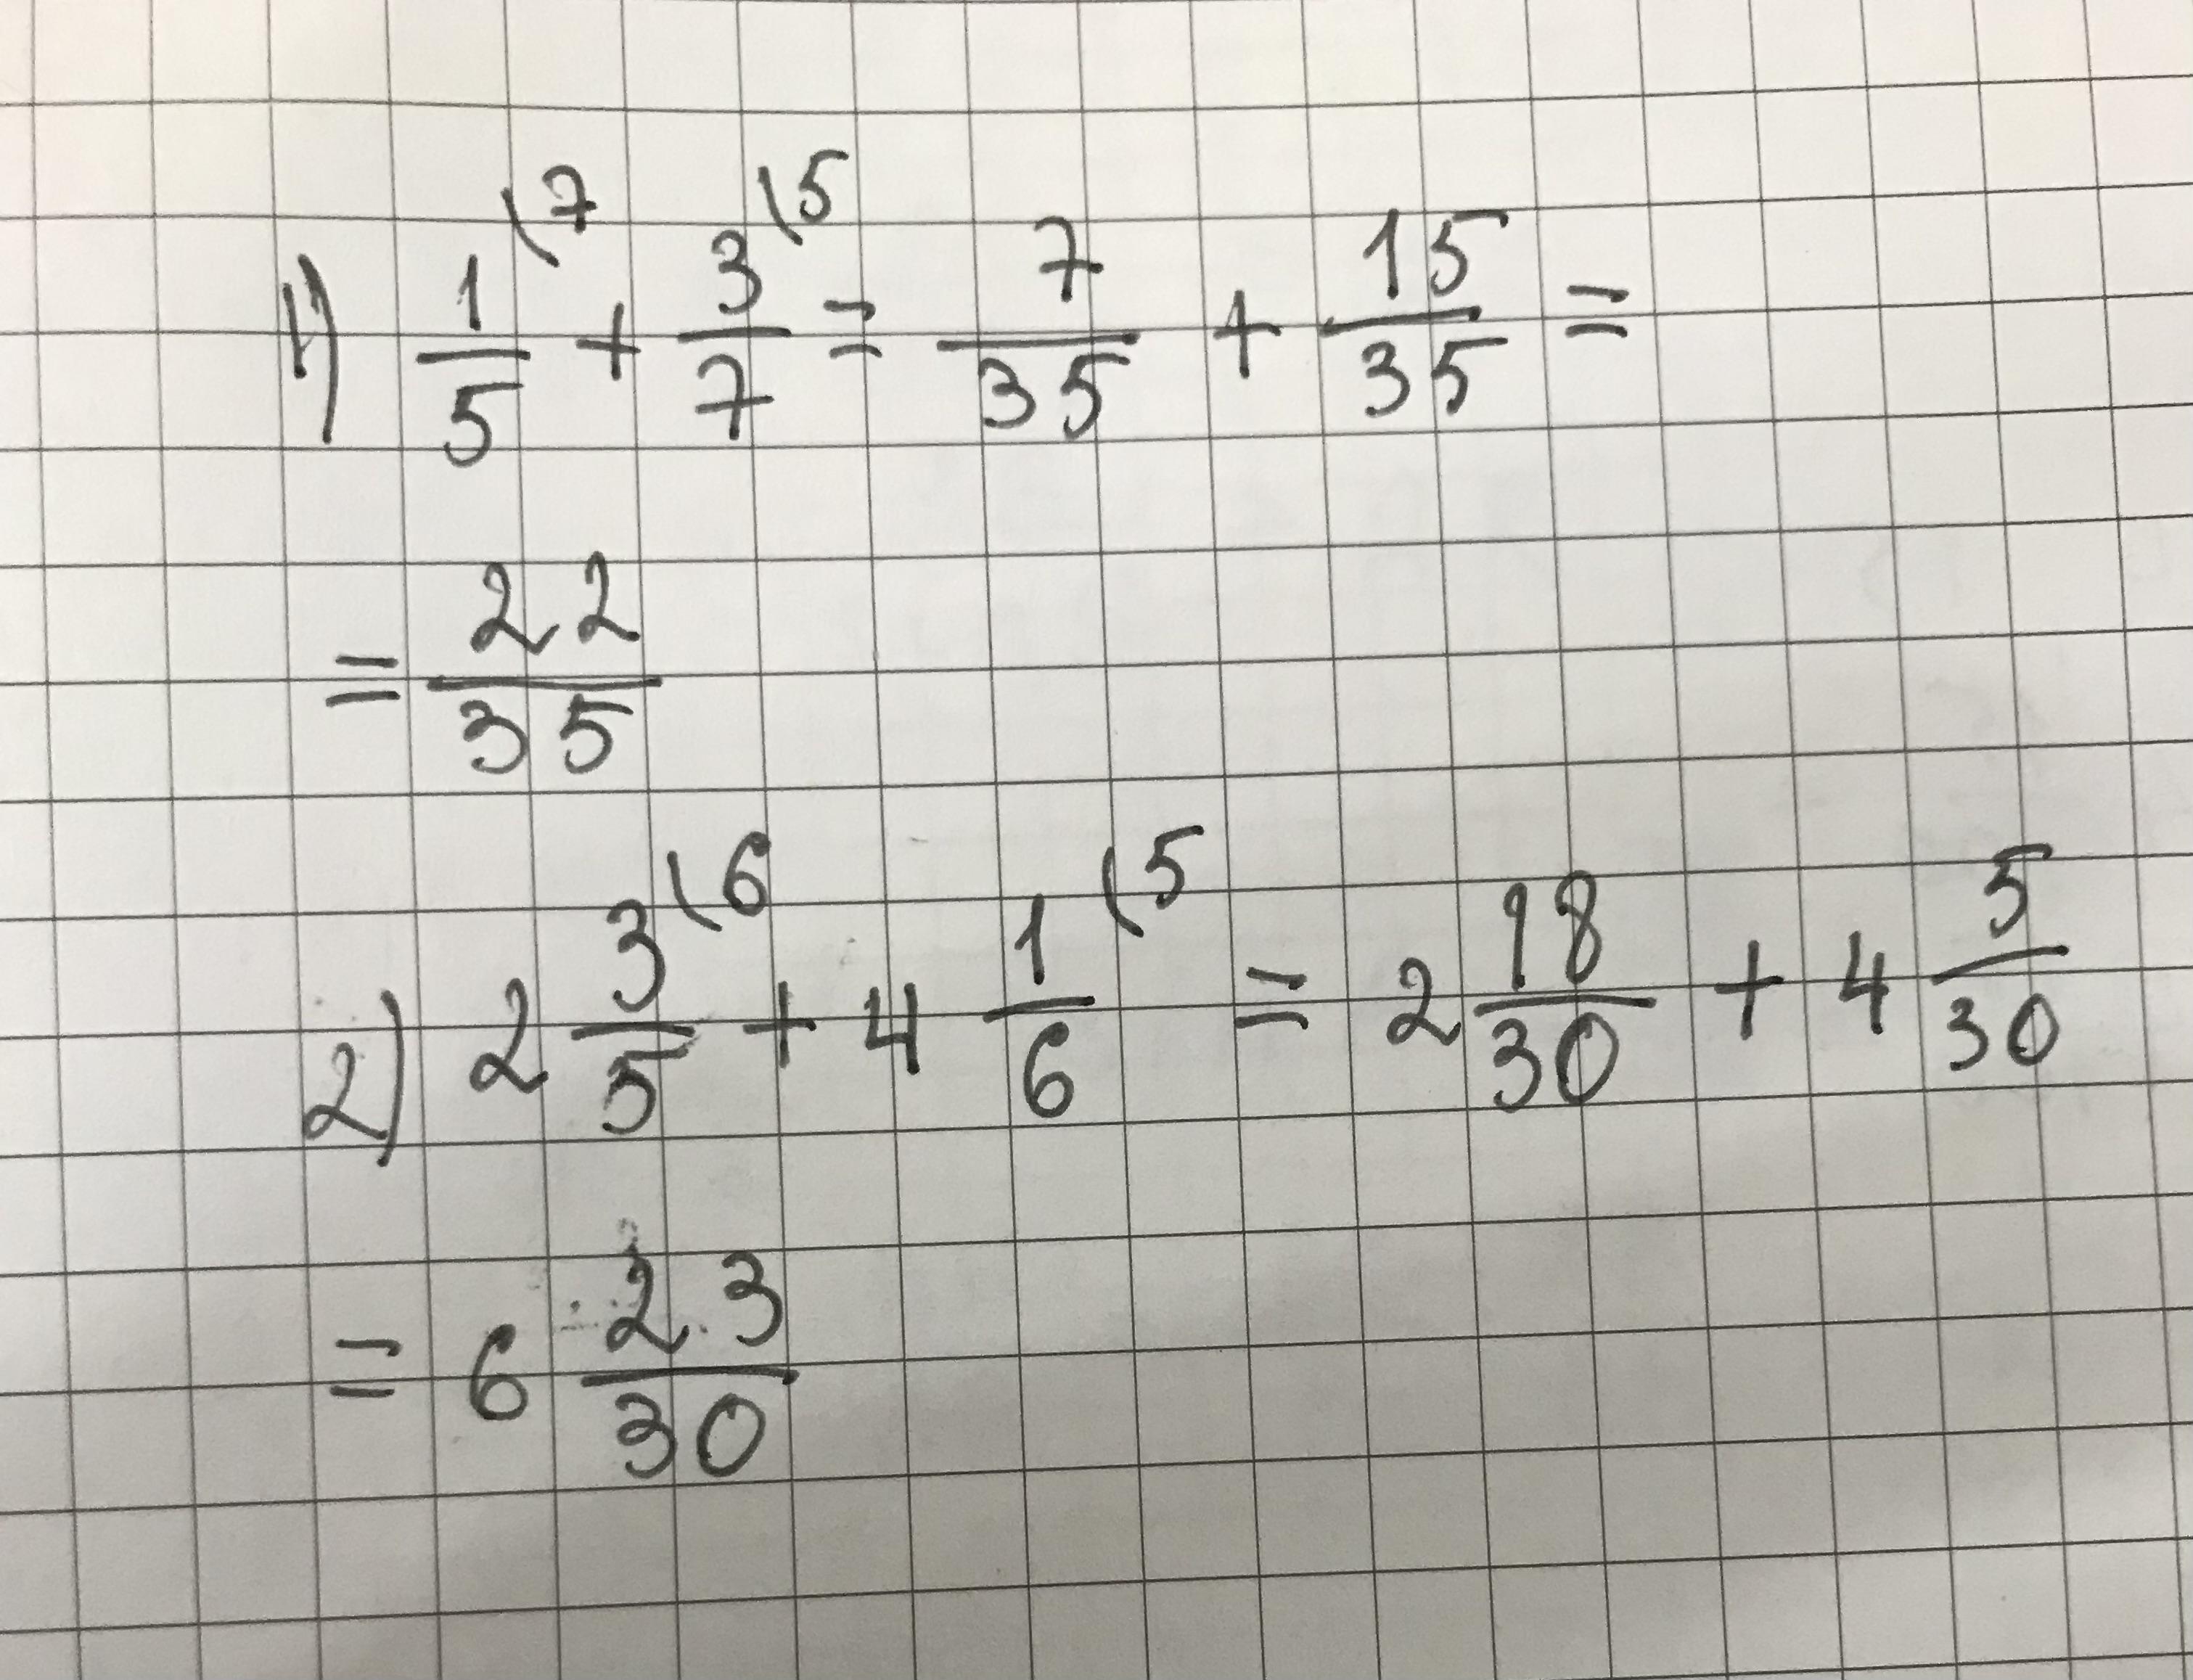 1) 1/5 (7 + 3/7 (5 = 7/35 + 15/35 =
= 22/35
2) 2 3/5 (6 + 4 1/6 (5 = 2 18/30 + 4 5/30
= 6 23/30